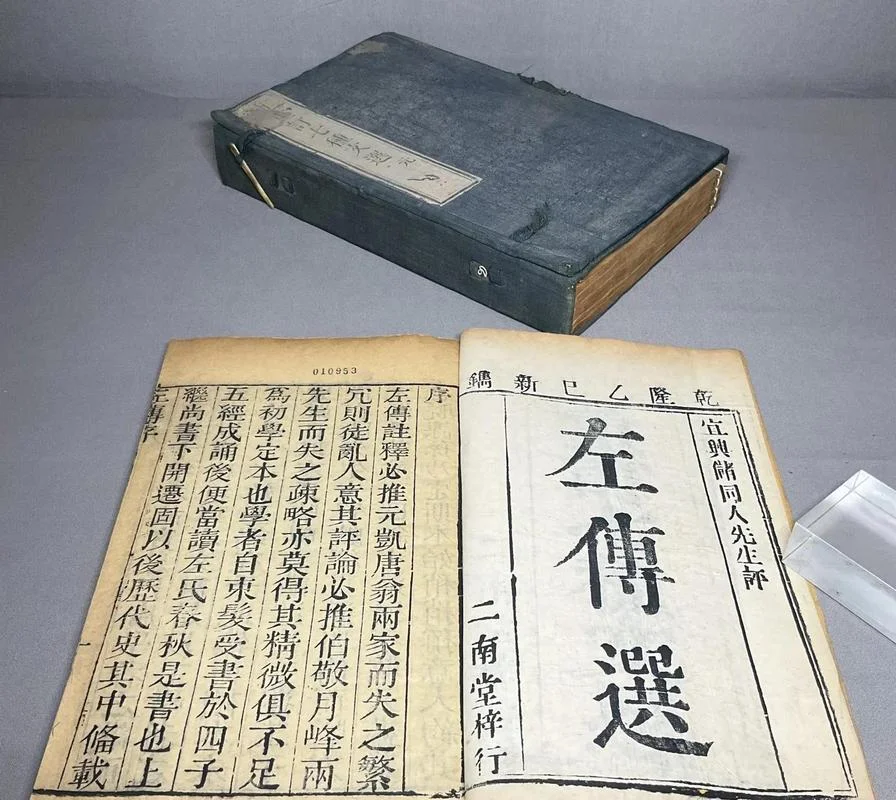 訂七種文選
元
9
乾隆乙巳新鐫
宜興儲同人先生評
左傳選
二南堂梓行
010953
序
左傳註釋必推元凱唐翁兩家而失之繁
冗則徒亂人意其評論必推伯敬月峰兩
先生而失之疎略亦莫得其精微俱不足
爲初學定本也學者自束髮受書於四子
五經成誦後便當讀左氏春秋是書也上
繼尚書下開遷固以後歷代史其中偹載
左傳序
一